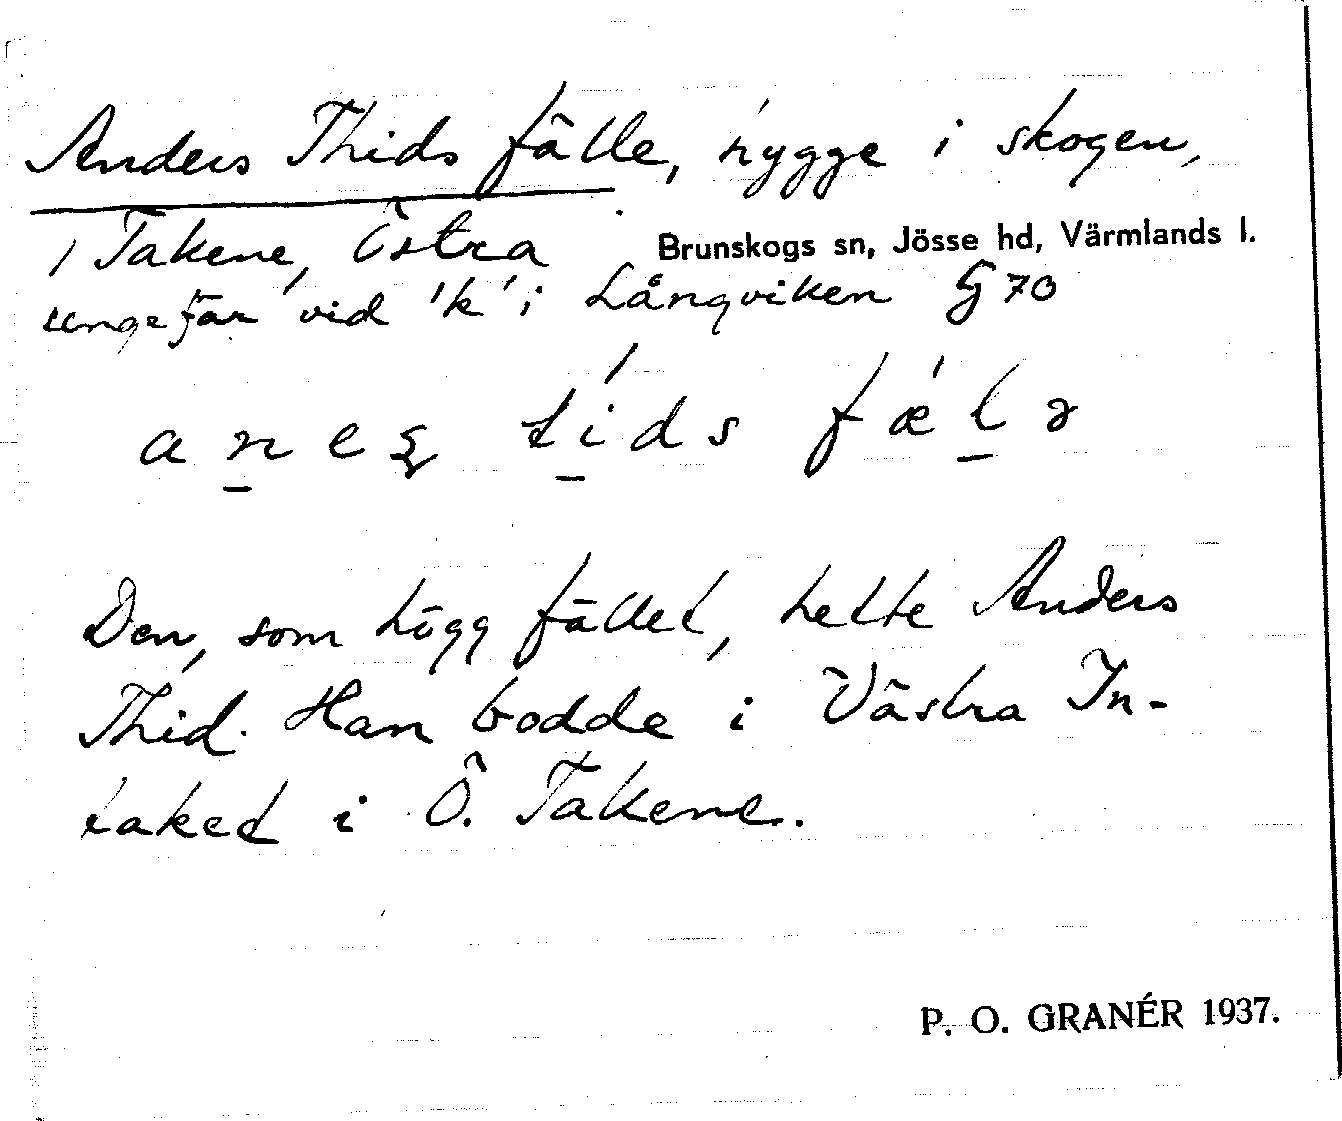 Anders Thids fälle, hygge i skogen,
/ Takene, Östra Brunskogs sn, Jösse hd, Värmlands l.
ungefär vid 'k' i Långviken G 70
aṉeʂ ṯíds fǽḻə
Den, som högg fället, hette Anders
Thid. Han bodde i Västra In-
taket i Ö. Takene.
P. O. GRANÉR 1937.